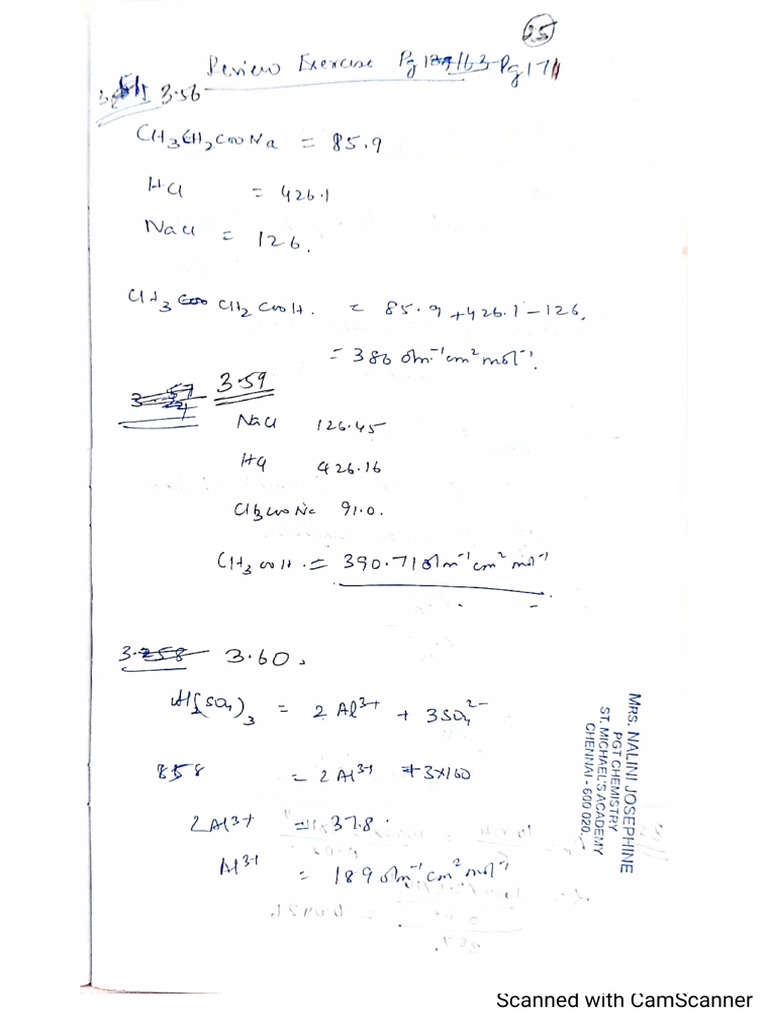 25
Review Exercise Pg 171
3.56
CH3CH2COONa = 85.9
HCl = 426.1
NaCl = 126.
CH3 CH2 COOH. = 85.9 + 426.1 - 126.
= 386 ohm⁻¹cm²mol⁻¹.
3.59
NaCl 126.45
HCl 426.16
CH3COONa 91.0.
CH3COOH. = 390.71 ohm⁻¹cm² mol⁻¹
3.60.
Al2(SO4)3 = 2Al³⁺ + 3SO4²⁻
858 = 2Al³⁺ + 3x160
2Al³⁺ = 378.
Al³⁺ = 189 ohm⁻¹cm²mol⁻¹
MRS. NALINI JOSEPHINE
PGT CHEMISTRY
ST. MICHAEL'S ACADEMY
CHENNAI - 600 020.
Scanned with CamScanner